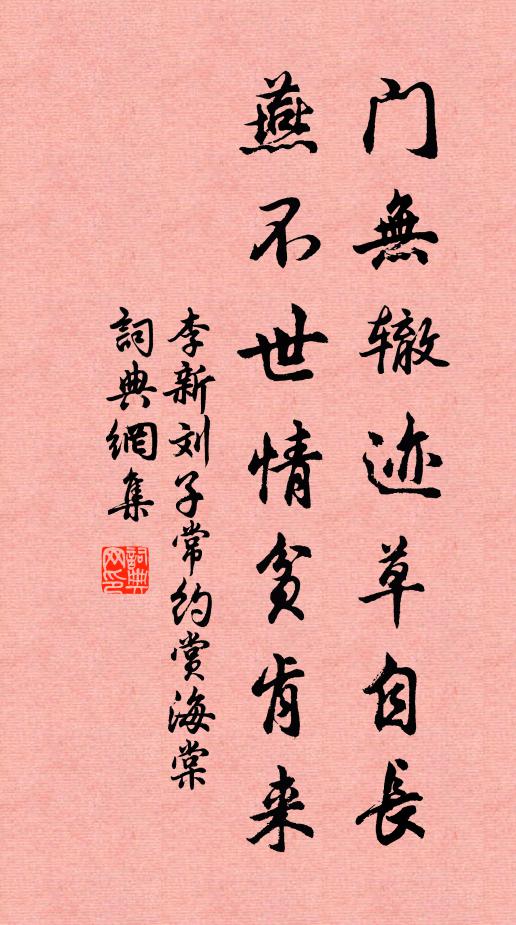 门無辙迹草自長
燕不世情贫肯来
李新刘子常约赏海棠
詞典網集
詞典网印